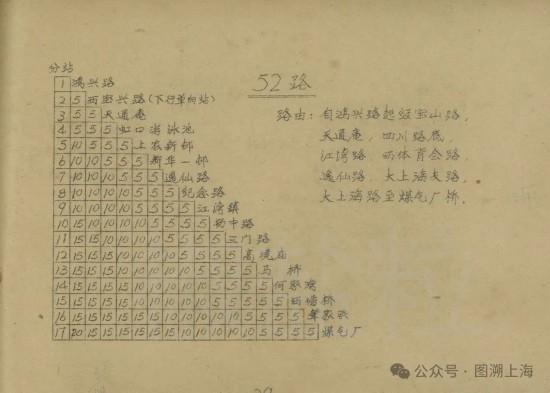 分站
52路
1 鸿兴路
2 5 西宝兴路(下行单向站)
3 5 5 天通庵
4 5 5 5 虹口游泳池
5 10 5 5 5 上农新邨
6 10 10 5 5 5 新华一邨
7 10 10 10 5 5 5 逸仙路
8 10 10 10 10 5 5 5 纪念路
9 10 10 10 10 5 5 5 5 江湾镇
10 15 10 10 10 10 5 5 5 5 场中路
11 15 15 10 10 10 10 5 5 5 5 三门路
12 15 15 15 10 10 10 5 5 5 5 5 高境庙
13 15 15 15 10 10 10 10 5 5 5 5 马桥
14 15 15 15 15 10 10 10 10 5 5 5 5 何家湾
15 15 15 15 15 10 10 10 10 5 5 5 5 5 西塘桥
16 15 15 15 15 15 10 10 10 10 5 5 5 5
17 20 15 15 15 15 15 10 10 10 10 5 5 5 5 煤气厂
路由:自鸿兴路起经宝山路,
天通庵,四川路底,
江湾路,西体育会路,
逸仙路,大上海大路,
大上海路至煤气厂桥。
公众号·图溯上海